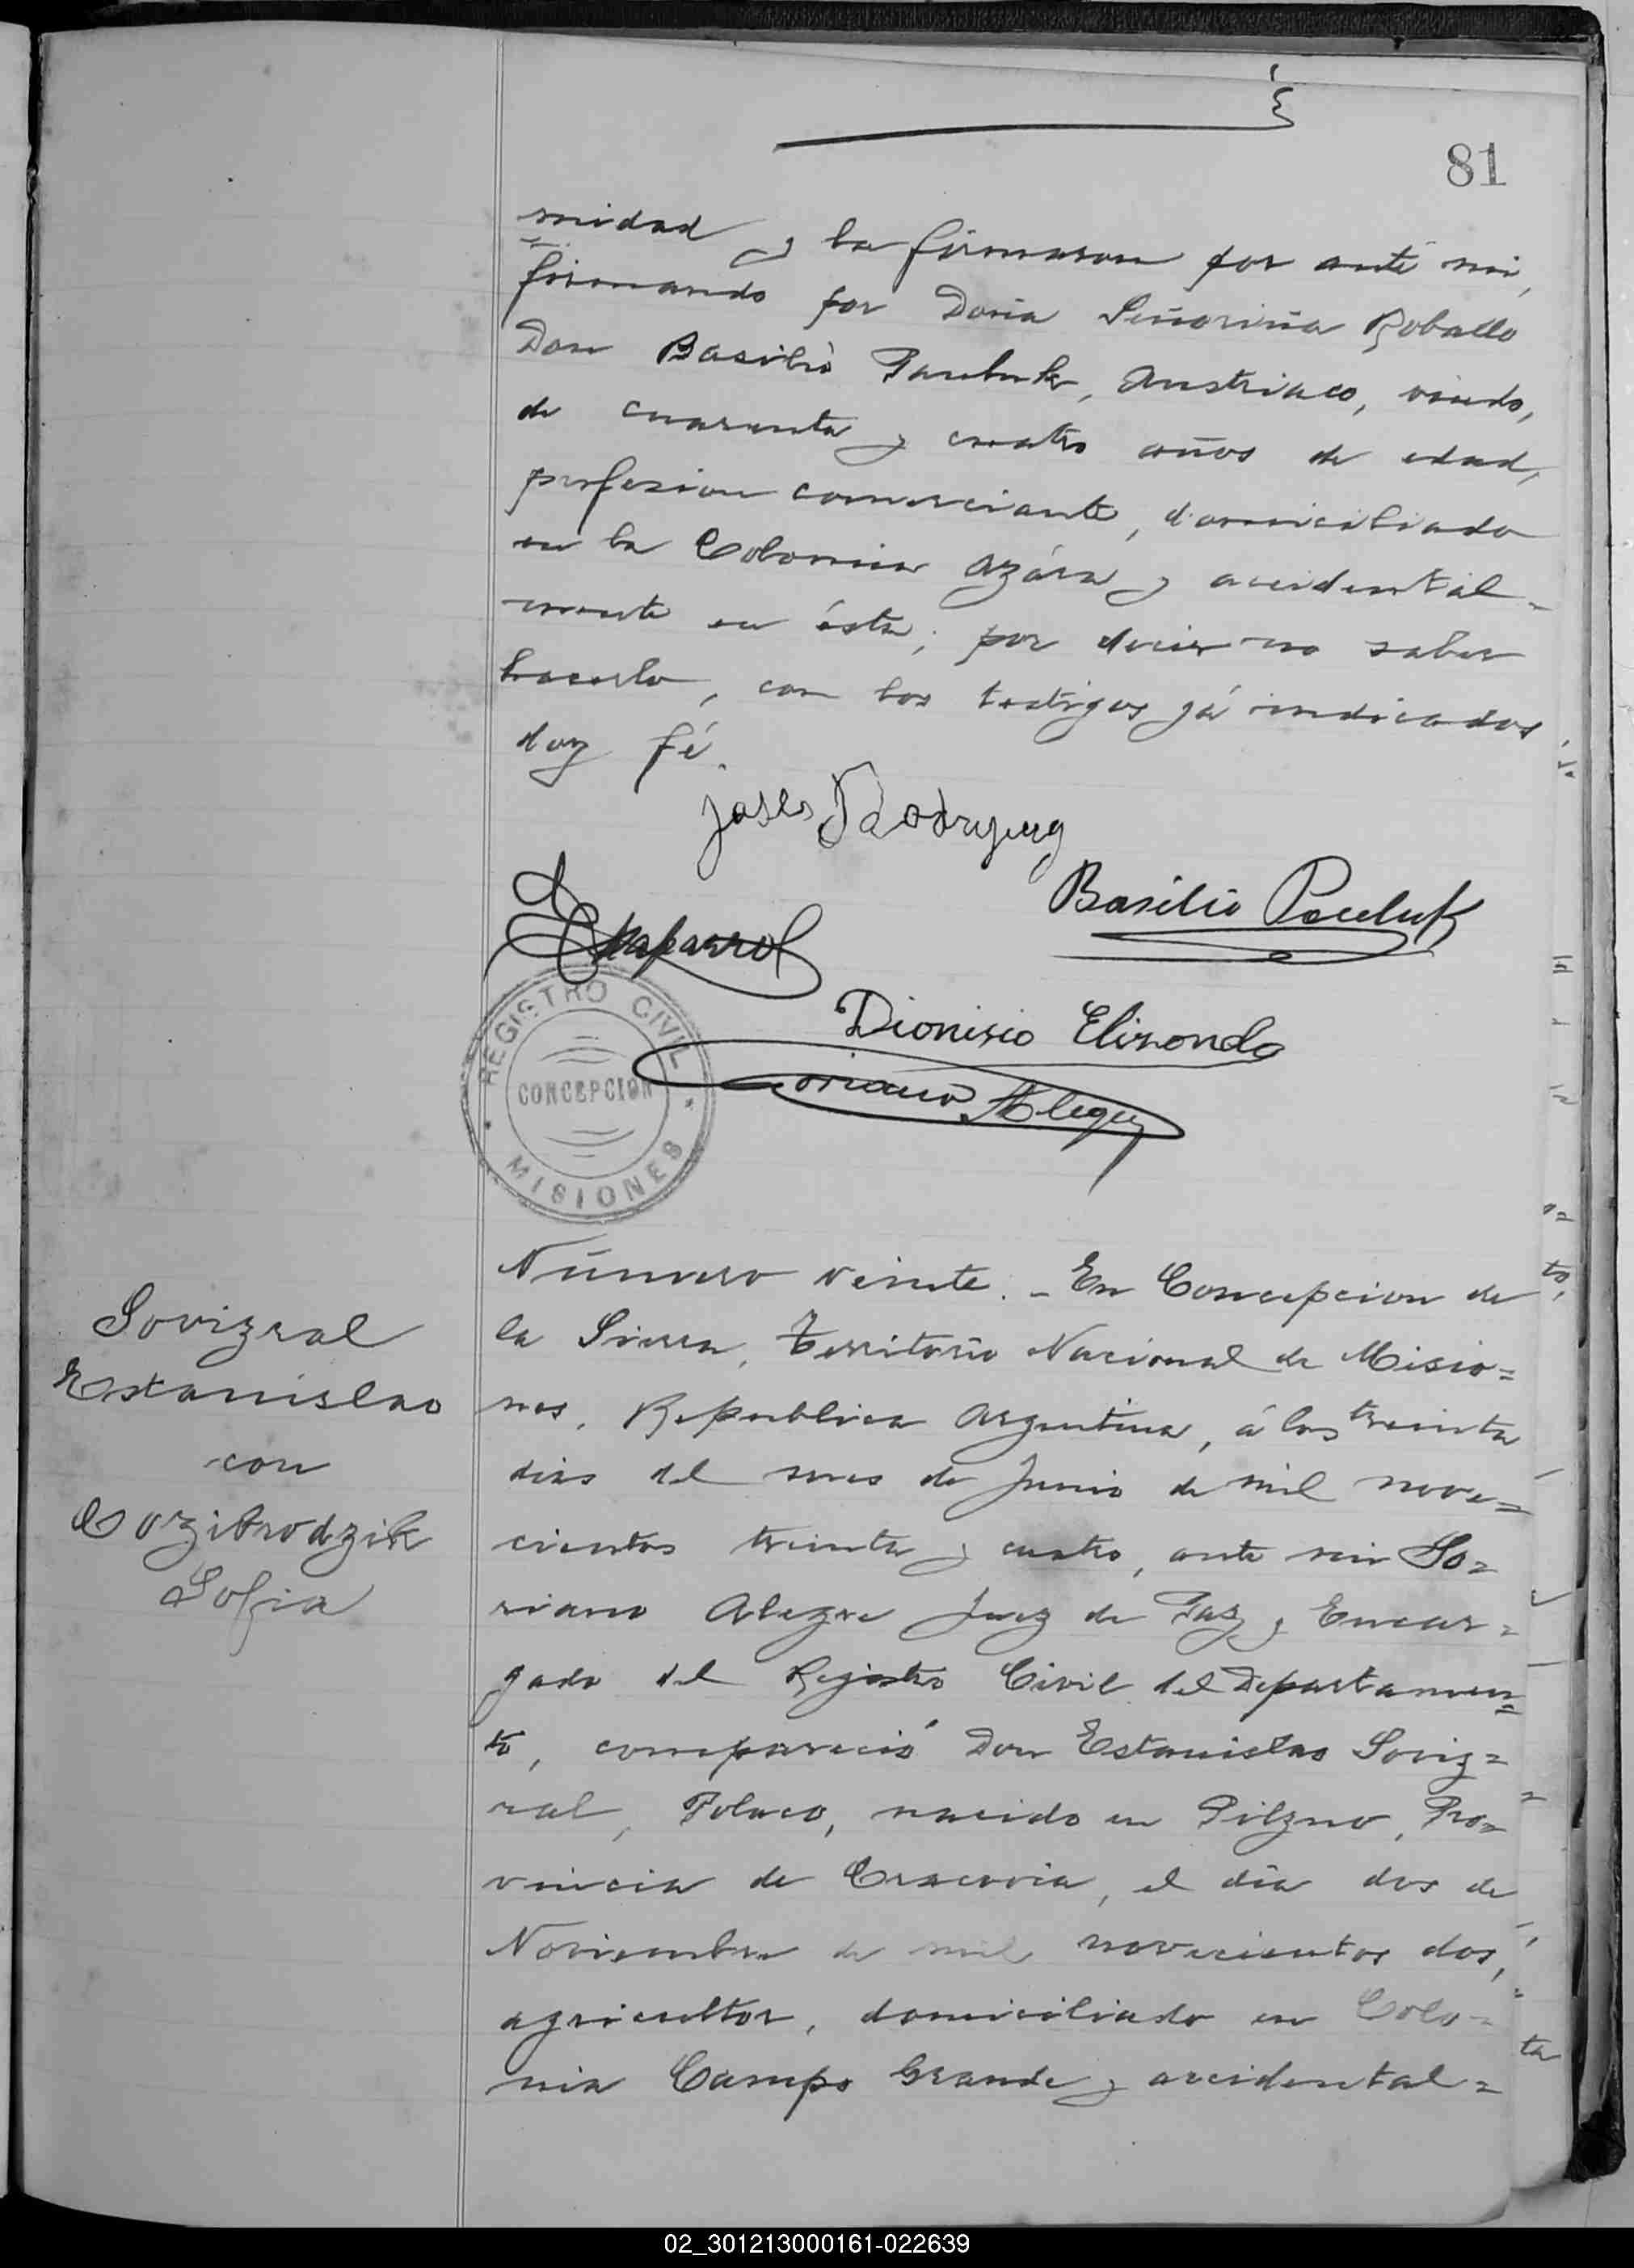 81
midad y la firmaron por ante mi,
firmando por Doña Señoriña Roballo
Don Basilio Paculuk, Austriaco, viudo,
de cuarenta y cuatro años de edad,
profesion comerciante, domiciliado
en la Colonia Azára y accidental-
mente en ésta, por decir no saber
hacerlo, con los testigos já indicados
doy fé.
Rodriguez
Basilio Paculuk
Chaparro
Dionisio Elizondo
Soriano Alegre
REGISTRO CIVIL
CONCEPCION
MISIONES
Sovizral
Estanislao
con
Cozibrodzik
Sofia
Número veinte. - En Concepcion de
la Sierra, Territorio Nacional de Misio=
nes, Republica Argentina, á los treinta
dias del mes de Junio de mil nove=
cientos treinta y cuatro, ante mi So=
riano Alegre Juez de Paz y Encar=
gado del Rejistro Civil del Departamen=
to, compareció Don Estanislao Soviz=
ral, Polaco, nacido en Pilzno, Pro=
vincia de Cracovia, el dia dos de
Noviembre de mil novecientos dos,
agricultor, domiciliado en Colo=
nia Campo Grande y accidental=
02_301213000161-022639